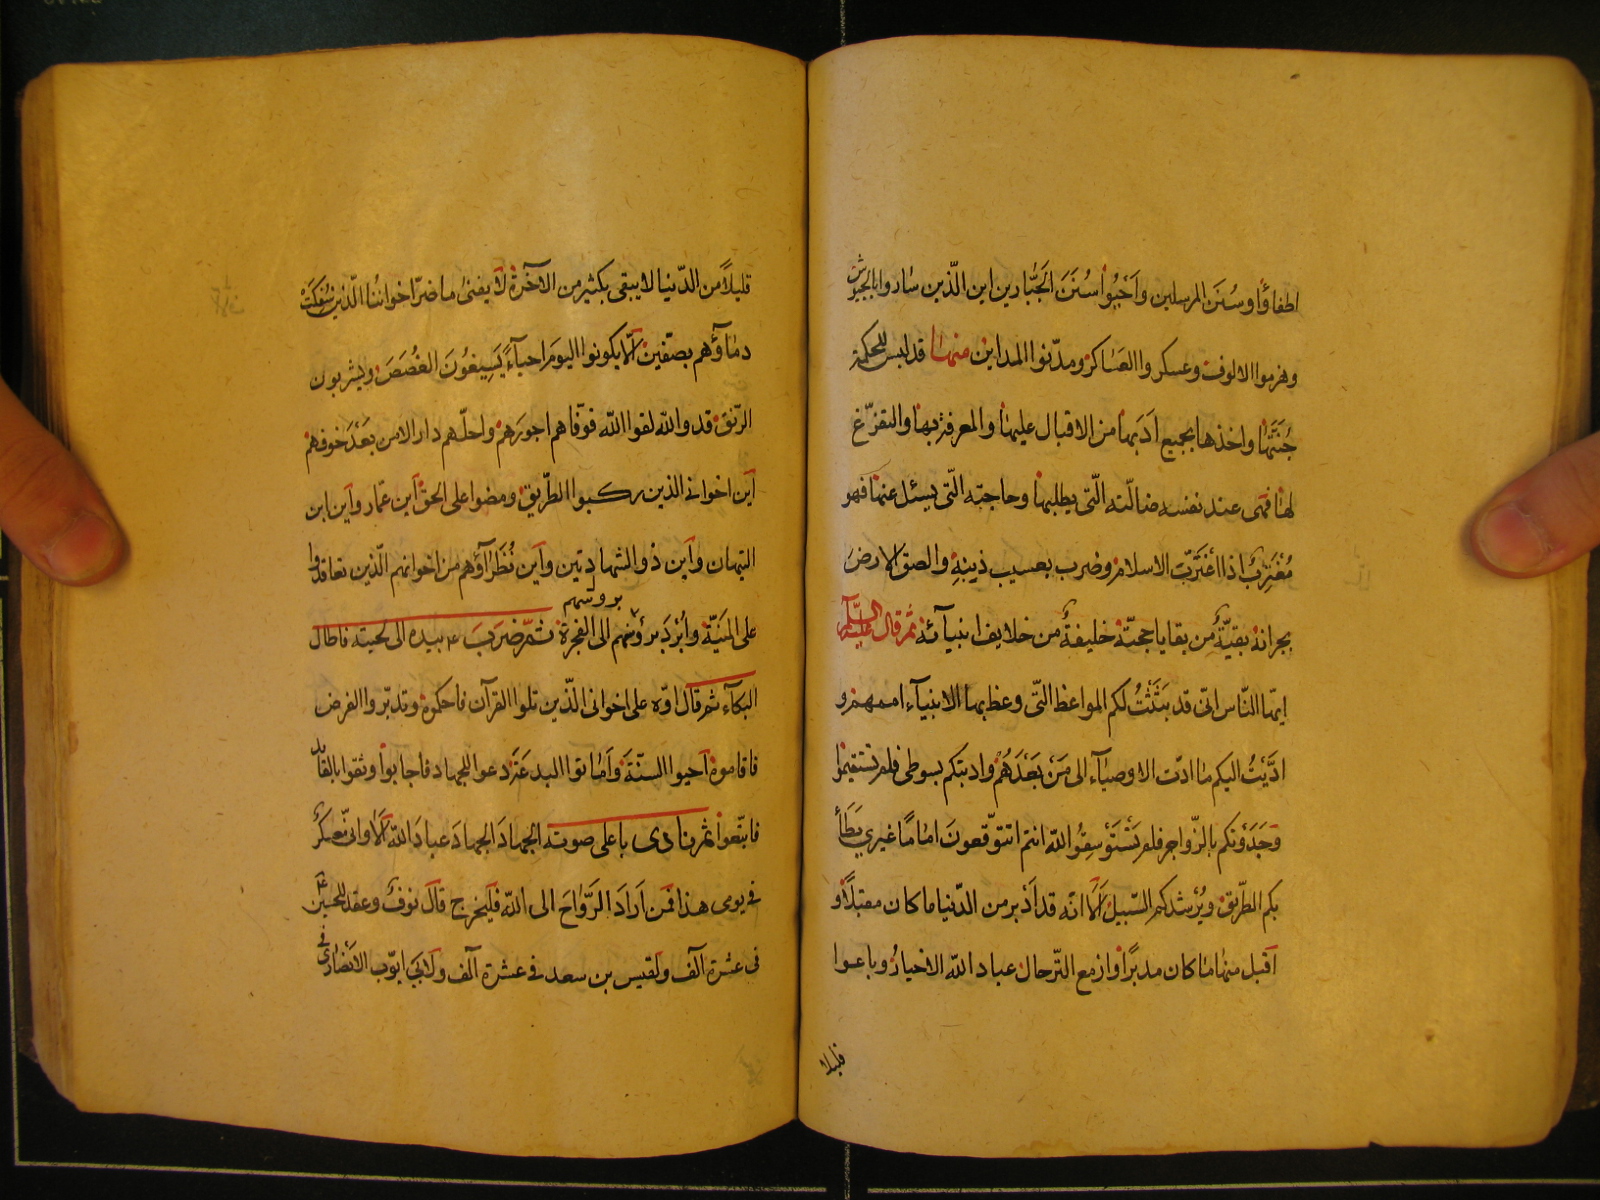 اطفاؤا وسُنَن المرسلين واَحْيُوا سُنَنَ الجَبَّارين اين الّذين سٰاروا بالجُيوش
وهزموا الالوف وعسكروا العَسٰاكر ومدّنوا المداين منهٰا قد لبس للحكمة
جُنَّتَهٰا واخذها بجميع اَدَبِهٰا من الاقبال عليهٰا والمعرفة بهٰا والتفرّغ
لهٰا فهى عند نفسه ضالّته الّتى يطلبهٰا وحاجته الّتى يسئل عنهٰا فهو
مُغْتَرِبٌ اذا اغْتَرَبَ الاسلام وضرب بعسيب ذنبهِ والصق الارضَ
بجرانه بقيّةٌ من بقايا حجّته خليفةٌ من خلايف انبيآئه ثم قال عليه السلام
ايّها النّاس انّى قد بَثَثْتُ لكم المواعظ التّى وعظ بها الانبيآء اممهم و
ادّيْتُ اليكم مٰا ادّت الاوصيٰآء الى مَنْ بَعْدَهُمْ وادبتكم بسوطى فلم تستقيموا
وَحَدَوْتكم بالزّواجر فلم تَسْتَوْسِقُوا للّه انتم اتتوّقعونَ امٰامًا غيري يَطَأ
بكم الطّريق ويُرْشدكم السّبيل اَلٰا انّه قد اَدْبر من الدّنيا ما كان مقبلًا و
اَقبل منهٰا مٰا كان مدبرًا وازمع التّرحال عباد اللّه الاخيارُ وباعوا
قليلا
قليلًا من الدّنيا لا يبقى بكثير من الآخرة لا يفنىٰ ما ضرّ اخواننا الّذين سُفِكَتْ
دمٰاؤهم بصفّين اَلّا يكونوا اليومَ احيآءً يَسيغُونَ الغُصَصَ ويشربون
الرّنق قد واللّه لقوا اللّه فوفّاهم اجورَهم واحلّهم دار الامن بعْدَ خوفهم
اَين اخوانى الذين ركبوا الطّريق ومضوا على الحقّ اَين عمّار واَين ابن
التيهان واَين ذو الشهادتين واَين نُظَرٰآؤهم من اخوانهم الّذين تعاقدوا
بروسهم
على المَنيّة واُبْرِدَ برؤسهم الى الفجرة ثمّ ضربَ ع بيده الى لحيته فاطال
البكآء ثم قال اوّه على اخوانى الذّين تلوا القرآن فاحكموه وتدبّروا الفرض
فاقاموه اَحيوا السنّةَ واَمٰاتوا البدعَةَ دعوا للجهاد فاجابوا وثقوا بالقائد
فاتبّعوا ثم نادى باعلى صوته الجهادَ الجهادَ عبادَ اللّه اَلا وانى مُعسكرٌ
فى يومى هذا فمن اَرادَ الرّواحَ الى اللّه فليخرج قال نوفٌ وعقد للحسين ع
فى عشرة آلف ولقيس بن سعد فى عشرة آلف ولابى ايوّب الانصٰارى فى